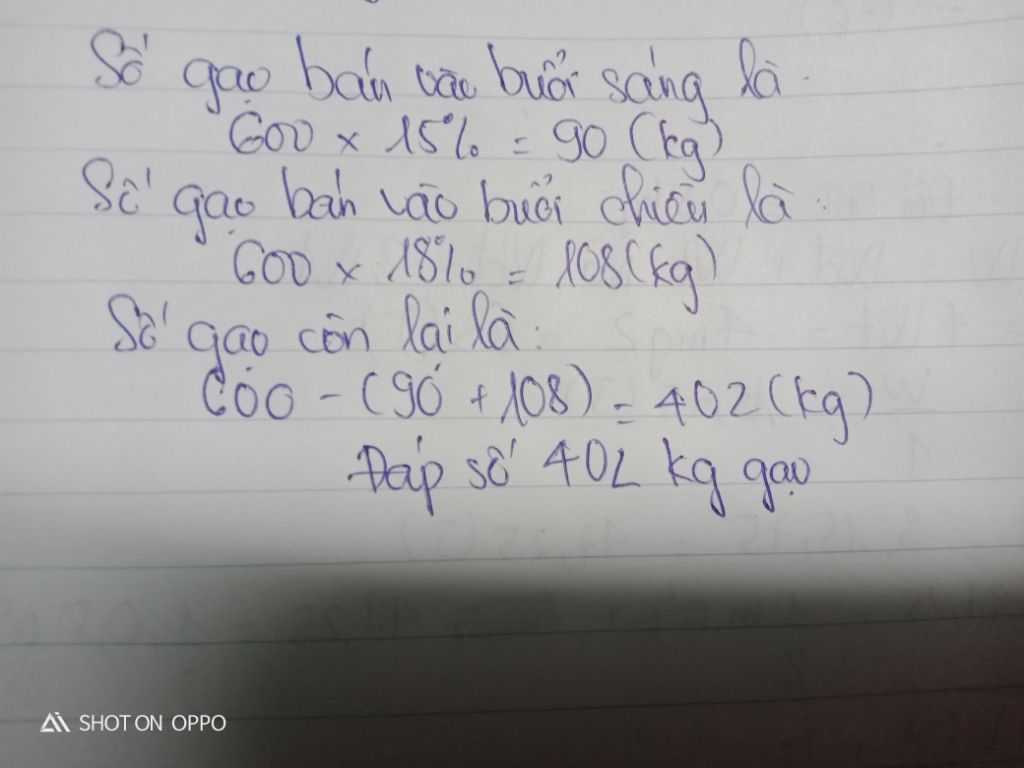 Số gạo bán vào buổi sáng là.
600 x 15% = 90 (kg)
Số gạo bán vào buổi chiều là:
600 x 18% = 108 (kg)
Số gạo còn lại là:
600 - (90 + 108) = 402 (kg)
Đáp số 402 kg gạo
SHOT ON OPPO